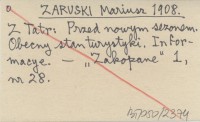 ZARUSKI Mariusz 1908.
Z Tatr. Przed nowym sezonem.
Obecny stan turystyki. Infor-
macye. — „Zakopane" 1,
nr 28.